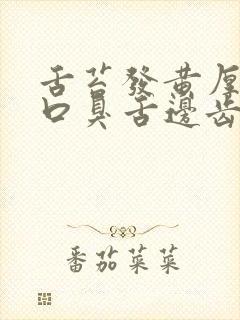 舌苔發黃厚
口臭舌邊齒
番茄菜菜